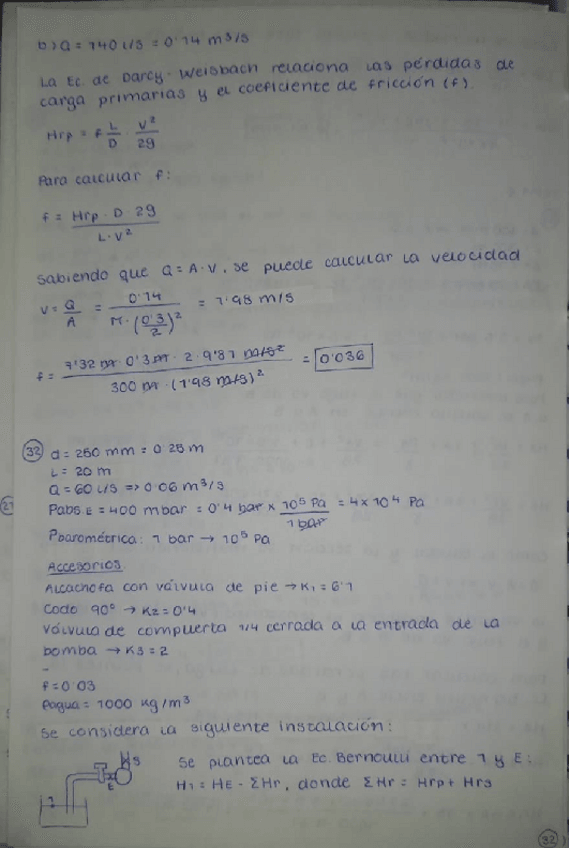 b) Q = 140 l/s = 0'14 m³/s
La Ec. de Darcy-Weisbach relaciona las pérdidas de
carga primarias y el coeficiente de fricción (f).
Hrp = f L/D · V²/2g
Para calcular f:
f = Hrp · D 2g / L · V²
Sabiendo que Q = A · V, se puede calcular la velocidad
V = Q/A = 0'14 / π · (0'3/2)² = 1'98 m/s
f = 7'32 m · 0'3 m · 2 · 9'81 m/s² / 300 m · (1'98 m/s)² = 0'036
32 d = 250 mm = 0'25 m
L = 20 m
Q = 60 l/s => 0'06 m³/s
21 Pabs E = 400 mbar = 0'4 bar × 10⁵ Pa / 1 bar = 4 × 10⁴ Pa
Pbarométrica: 1 bar → 10⁵ Pa
Accesorios
Alcachofa con válvula de pie → K1 = 6'1
Codo 90° → K2 = 0'4
Válvula de compuerta 1/4 cerrada a la entrada de la
bomba → K3 = 2
f = 0'03
ρagua = 1000 kg/m³
Se considera la siguiente instalación:
S
E
1
Se plantea la Ec. Bernoulli entre 1 y E:
H1 = HE - ΣHr, donde ΣHr = Hrp + Hrs
32